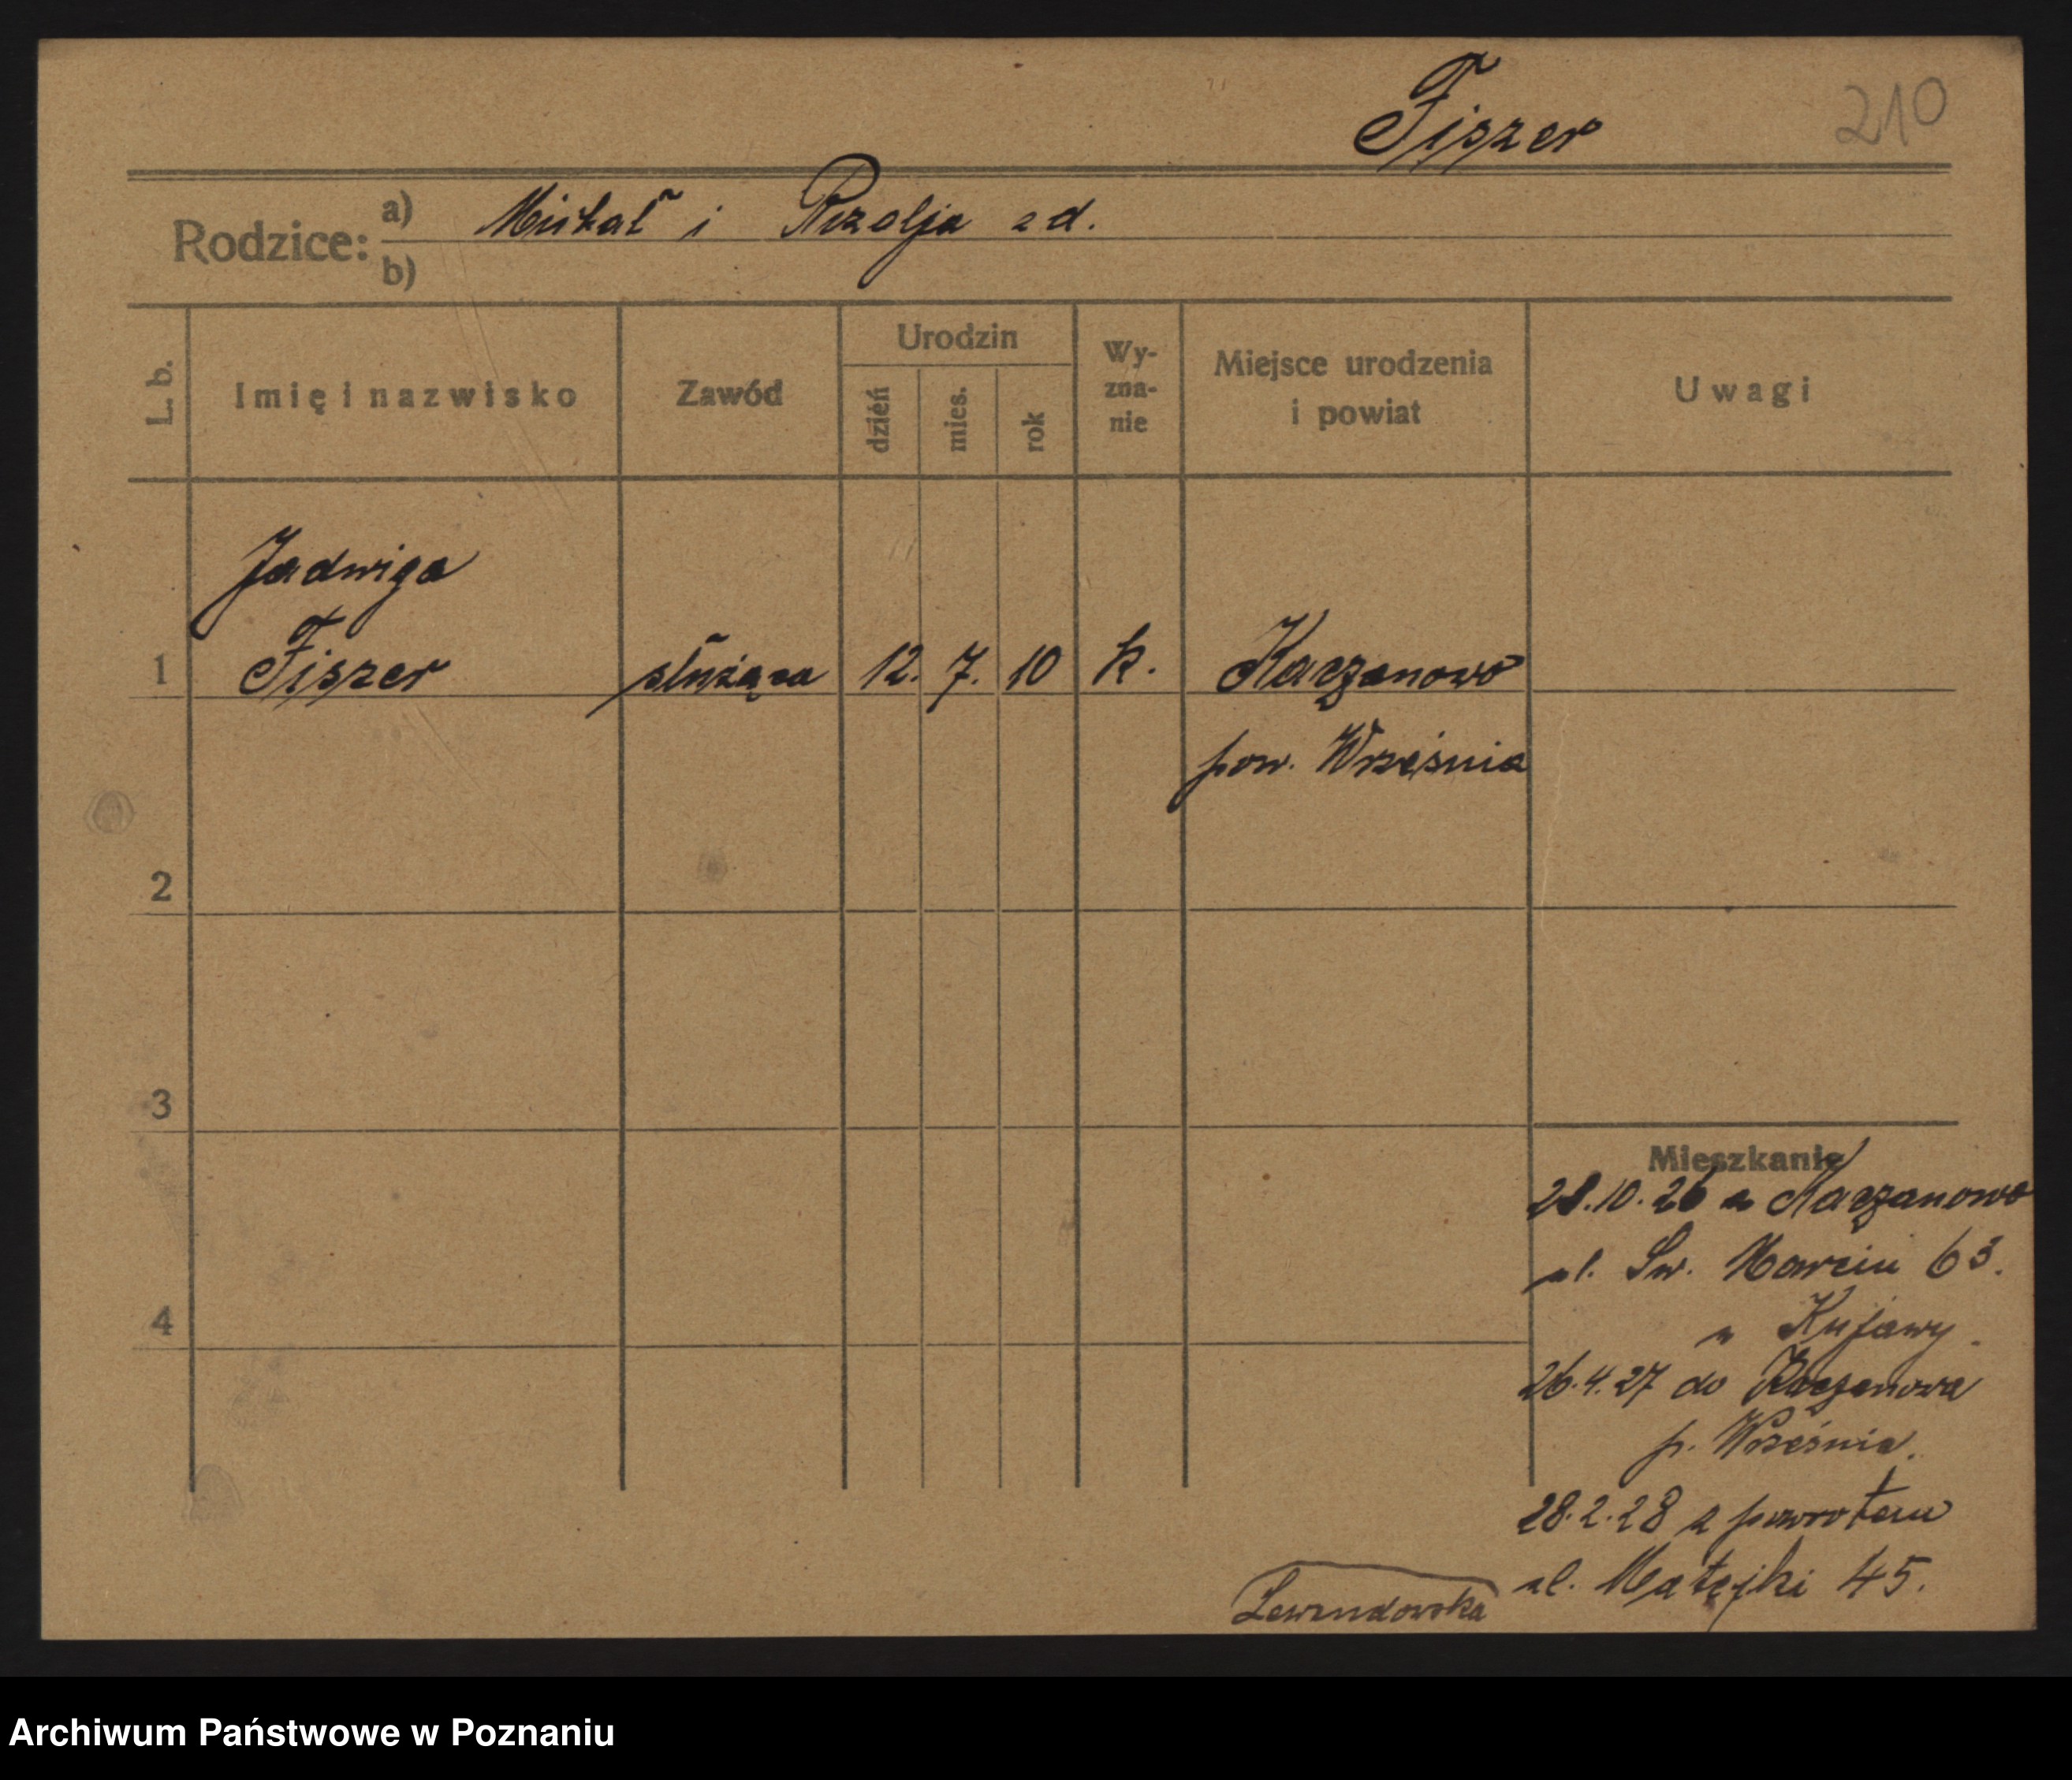 Fiszer 210
Rodzice: a) Michał i Rozalja z d.
b)
L. b. Imię i nazwisko Zawód Urodzin dzień mies. rok Wy-zna-nie Miejsce urodzenia i powiat Uwagi
Jadwiga
1 Fiszer służąca 12. 7. 10 k. Kaczanowo
pow. Września
2
3
Mieszkanie
28.10.26 z Kaczanowo
ul. Św. Marcin 63.
4
u Kujawy.
26.4.27 do Kaczanowa
p. Września.
28.2.28 z powrotem
ul. Matejki 45.
Lewandowska
Archiwum Państwowe w Poznaniu